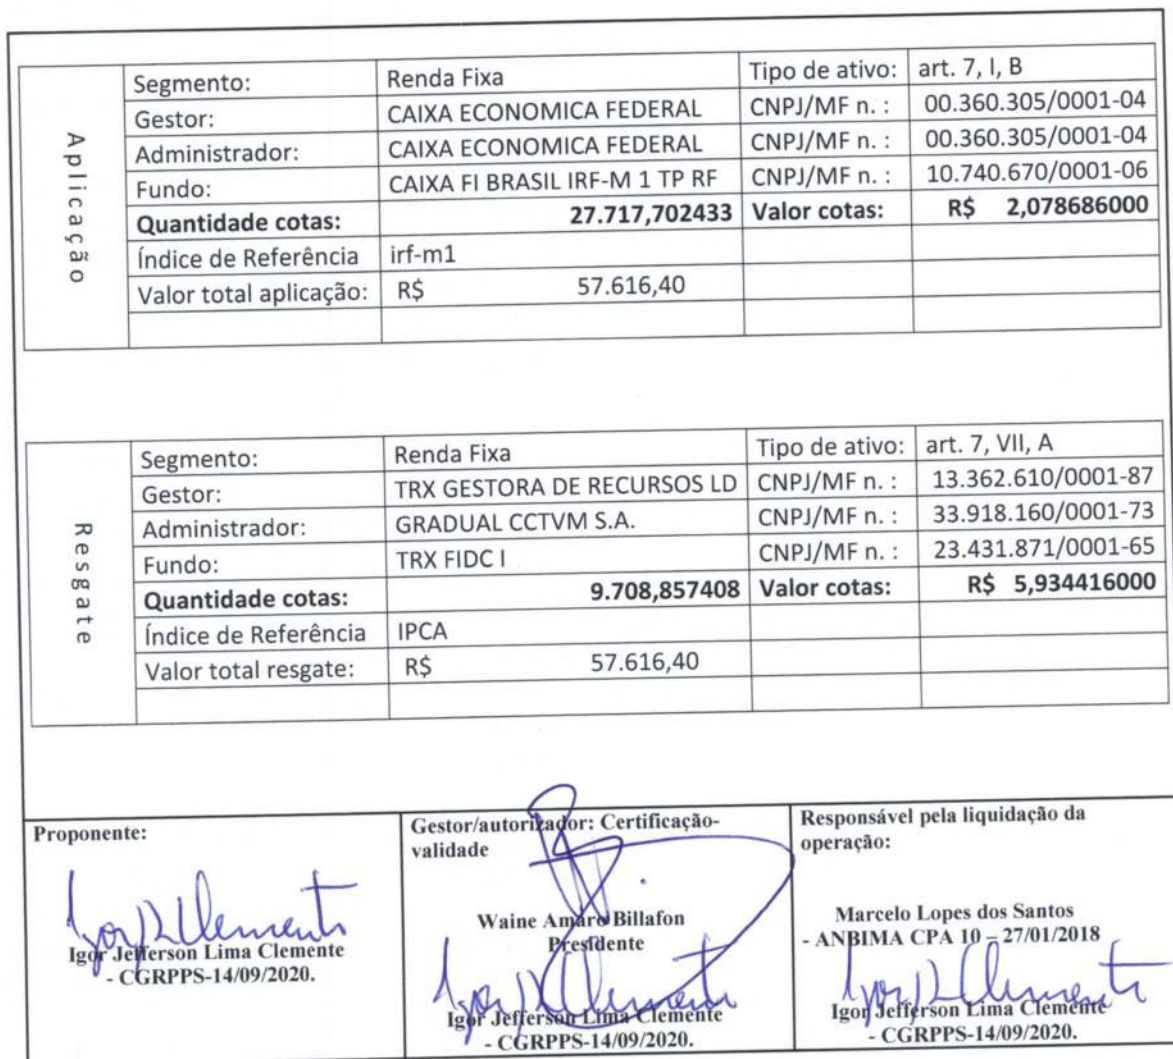 Aplicação
Segmento: Renda Fixa Tipo de ativo: art. 7, I, B
Gestor: CAIXA ECONOMICA FEDERAL CNPJ/MF n. : 00.360.305/0001-04
Administrador: CAIXA ECONOMICA FEDERAL CNPJ/MF n. : 00.360.305/0001-04
Fundo: CAIXA FI BRASIL IRF-M 1 TP RF CNPJ/MF n. : 10.740.670/0001-06
Quantidade cotas: 27.717,702433 Valor cotas: R$ 2,078686000
Índice de Referência irf-m1
Valor total aplicação: R$ 57.616,40
Resgate
Segmento: Renda Fixa Tipo de ativo: art. 7, VII, A
Gestor: TRX GESTORA DE RECURSOS LD CNPJ/MF n. : 13.362.610/0001-87
Administrador: GRADUAL CCTVM S.A. CNPJ/MF n. : 33.918.160/0001-73
Fundo: TRX FIDC I CNPJ/MF n. : 23.431.871/0001-65
Quantidade cotas: 9.708,857408 Valor cotas: R$ 5,934416000
Índice de Referência IPCA
Valor total resgate: R$ 57.616,40
Proponente:
Igor Jefferson Lima Clemente
- CGRPPS-14/09/2020.
Gestor/autorizador: Certificação-
validade
Waine Amaro Billafon
Presidente
Igor Jefferson Lima Clemente
- CGRPPS-14/09/2020.
Responsável pela liquidação da
operação:
Marcelo Lopes dos Santos
- ANBIMA CPA 10 – 27/01/2018
Igor Jefferson Lima Clemente
- CGRPPS-14/09/2020.